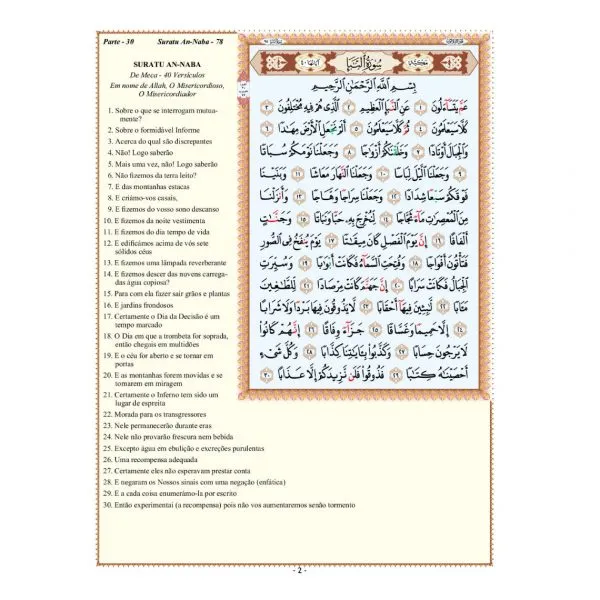 Parte - 30 Suratu An-Naba - 78
SURATU AN-NABA
De Meca - 40 Versículos
Em nome de Allah, O Misericordioso,
O Misericordiador
1. Sobre o que se interrogam mutua-
mente?
2. Sobre o formidável Informe
3. Acerca do qual são discrepantes
4. Não! Logo saberão
5. Mais uma vez, não! Logo saberão
6. Não fizemos da terra leito?
7. E das montanhas estacas
8. E criámo-vos casais,
9. E fizemos do vosso sono descanso
10. E fizemos da noite vestimenta
11. E fizemos do dia tempo de vida
12. E edificámos acima de vós sete
sólidos céus
13. E fizemos uma lâmpada reverberante
14. E fizemos descer das nuvens carrega-
das água copiosa?
15. Para com ela fazer sair grãos e plantas
16. E jardins frondosos
17. Certamente o Dia da Decisão é um
tempo marcado
18. O Dia em que a trombeta for soprada,
então chegais em multidões
19. E o céu for aberto e se tornar em
portas
20. E as montanhas forem movidas e se
tornarem em miragem
21. Certamente o Inferno tem sido um
lugar de espreita
22. Morada para os transgressores
23. Nele permanecerão durante eras
24. Nele não provarão frescura nem bebida
25. Excepto água em ebulição e excreções purulentas
26. Uma recompensa adequada
27. Certamente eles não esperavam prestar conta
28. E negaram os Nossos sinais com uma negação (enfática)
29. E a cada coisa enumerámo-la por escrito
30. Então experimentai (a recompensa) pois não vos aumentaremos senão tormento
مكية سورة النبإ آياتها ٤٠
بِسْمِ اللَّهِ الرَّحْمَٰنِ الرَّحِيمِ
عَمَّ يَتَسَاءَلُونَ ١ عَنِ النَّبَإِ الْعَظِيمِ ٢ الَّذِي هُمْ فِيهِ مُخْتَلِفُونَ ٣
كَلَّا سَيَعْلَمُونَ ٤ ثُمَّ كَلَّا سَيَعْلَمُونَ ٥ أَلَمْ نَجْعَلِ الْأَرْضَ مِهَادًا ٦
وَالْجِبَالَ أَوْتَادًا ٧ وَخَلَقْنَاكُمْ أَزْوَاجًا ٨ وَجَعَلْنَا نَوْمَكُمْ سُبَاتًا
٩ وَجَعَلْنَا اللَّيْلَ لِبَاسًا ١٠ وَجَعَلْنَا النَّهَارَ مَعَاشًا ١١ وَبَنَيْنَا
فَوْقَكُمْ سَبْعًا شِدَادًا ١٢ وَجَعَلْنَا سِرَاجًا وَهَّاجًا ١٣ وَأَنزَلْنَا
مِنَ الْمُعْصِرَاتِ مَاءً ثَجَّاجًا ١٤ لِّنُخْرِجَ بِهِ حَبًّا وَنَبَاتًا ١٥ وَجَنَّاتٍ
أَلْفَافًا ١٦ إِنَّ يَوْمَ الْفَصْلِ كَانَ مِيقَاتًا ١٧ يَوْمَ يُنفَخُ فِي الصُّورِ
فَتَأْتُونَ أَفْوَاجًا ١٨ وَفُتِحَتِ السَّمَاءُ فَكَانَتْ أَبْوَابًا ١٩ وَسُيِّرَتِ
الْجِبَالُ فَكَانَتْ سَرَابًا ٢٠ إِنَّ جَهَنَّمَ كَانَتْ مِرْصَادًا ٢١ لِّلطَّاغِينَ
مَآبًا ٢٢ لَّابِثِينَ فِيهَا أَحْقَابًا ٢٣ لَّا يَذُوقُونَ فِيهَا بَرْدًا وَلَا شَرَابًا
٢٤ إِلَّا حَمِيمًا وَغَسَّاقًا ٢٥ جَزَاءً وِفَاقًا ٢٦ إِنَّهُمْ كَانُوا
لَا يَرْجُونَ حِسَابًا ٢٧ وَكَذَّبُوا بِآيَاتِنَا كِذَّابًا ٢٨ وَكُلَّ شَيْءٍ
أَحْصَيْنَاهُ كِتَابًا ٢٩ فَذُوقُوا فَلَن نَّزِيدَكُمْ إِلَّا عَذَابًا ٣٠
- 2 -